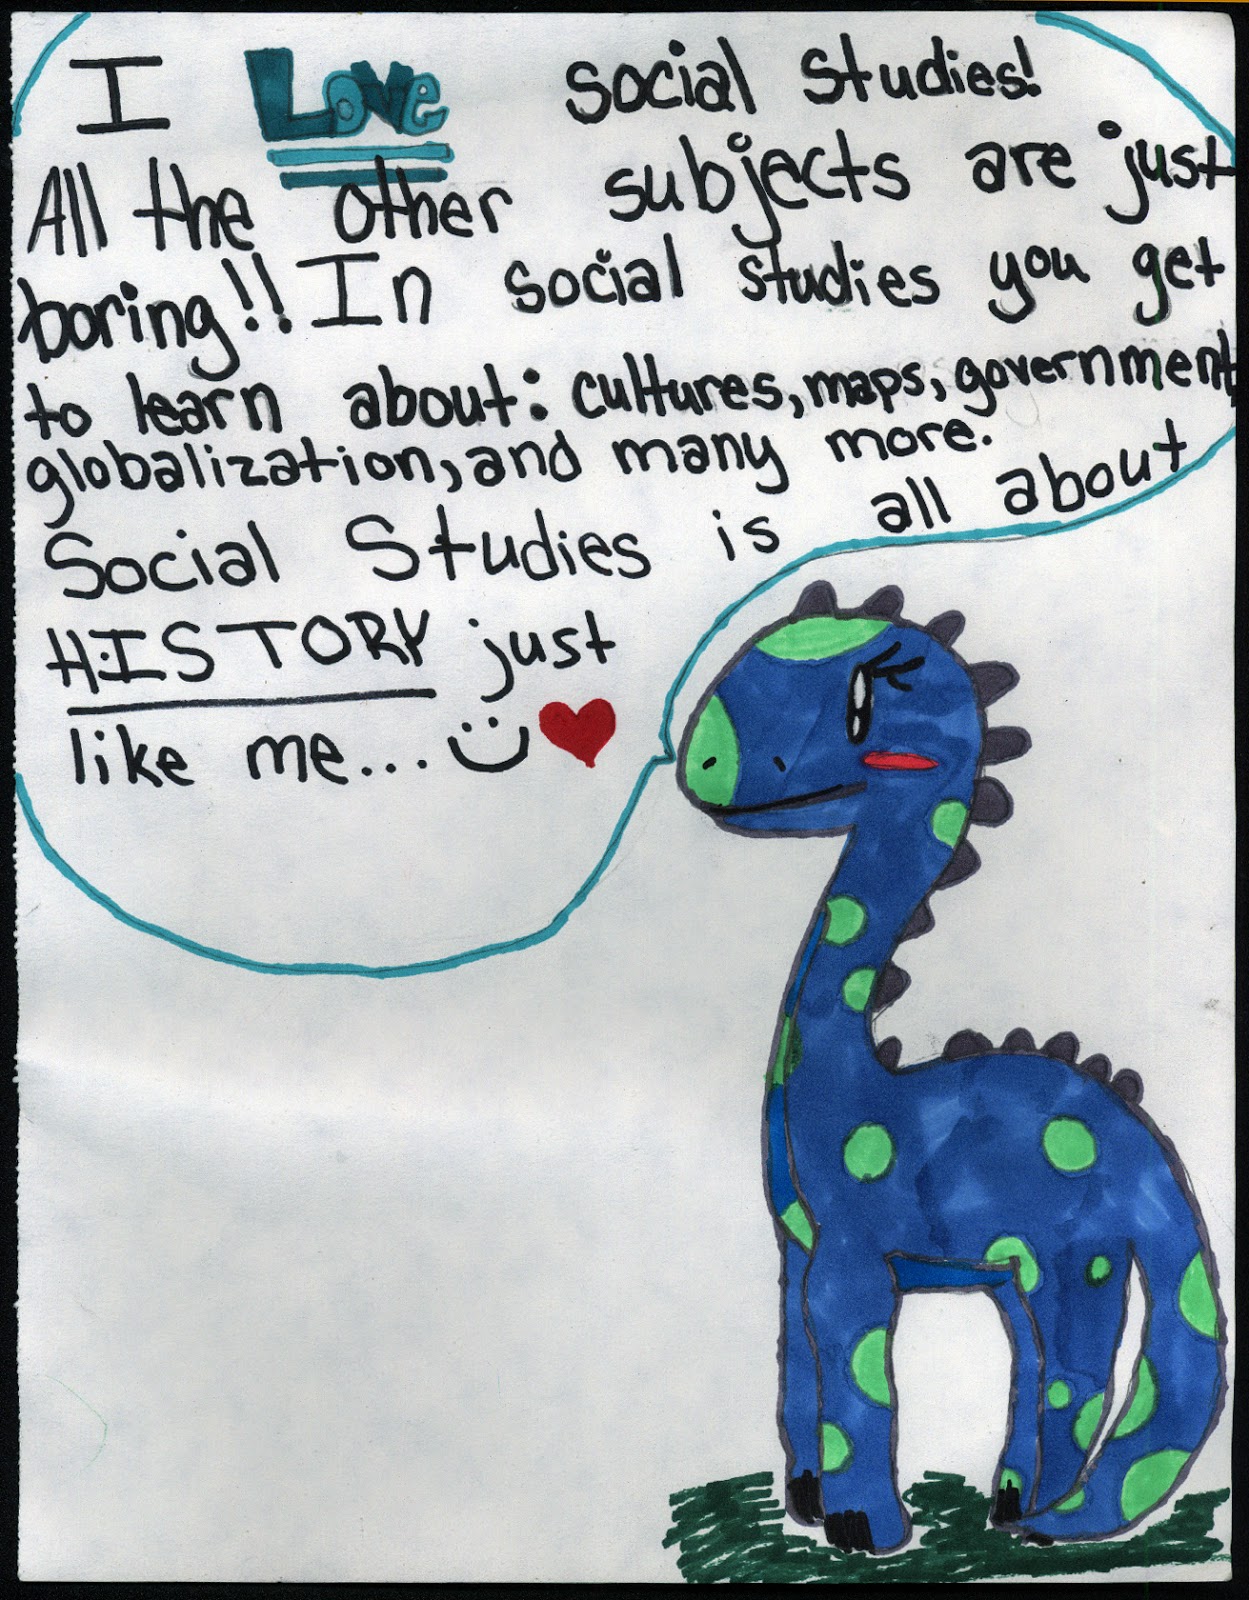 I Love social studies!
All the other subjects are just
boring!! In social studies you get
to learn about: cultures, maps, government
globalization, and many more.
Social Studies is all about
HISTORY just
like me...